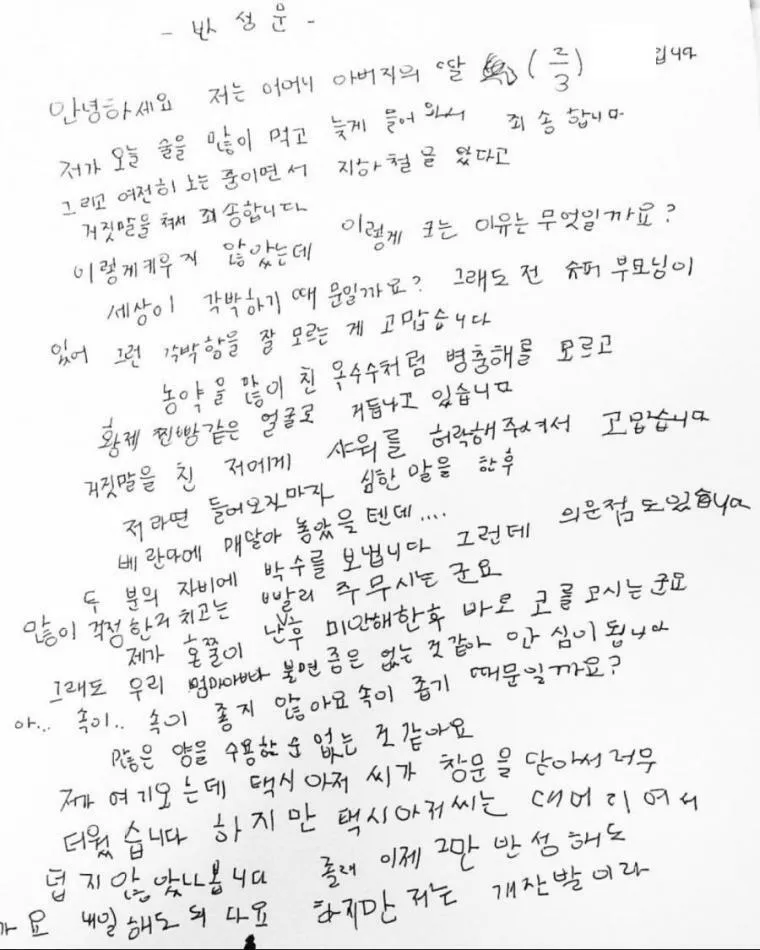 - 반성문 -
안녕하세요 저는 어머니 아버지의 딸 (2/3) 입니다
저가 오늘 술을 많이 먹고 늦게 들어와서 죄송합니다
그리고 여전히 노는 중이면서 지하철을 탔다고
거짓말을 쳐서 죄송합니다
이렇게키우지 않았는데 이렇게 크는 이유는 무엇일까요?
세상이 각박하기 때문일까요? 그래도 전 슈퍼 부모님이
있어 그런 각박함을 잘 모르는 게 고맙습니다
농약을 많이 친 옥수수처럼 병충해를 모르고
황제 찐빵같은 얼굴로 거듭나고 있습니다
거짓말을 친 저에게 샤워를 허락해주셔서 고맙습니다
저라면 들어오자마자 심한 말을 한후
베란다에 매달아 놓았을 텐데....
두 분의 자비에 박수를 보냅니다 그런데 의문점도있습니다
많이 걱정한거 치고는 빨리 주무시는 군요
제가 혼쭐이 난후 미안해한후 바로 코를 고시는군요
그래도 우리 엄마아빠 불면증은 없는 것같아 안심이 됩니다
아... 속이.. 속이 좋지 않아요 속이 좁기 때문일까요?
많은 양을 수용할 순 없는 것 같아요
제가 여기오는데 택시 아저씨가 창문을 닫아서 너무
더웠습니다 하지만 택시아저씨는 대머리여서
덥지않았나봅니다 졸려 이제 그만 반성해도
가요 내일 해도 되 다요 하지만 저는 개잔발이라